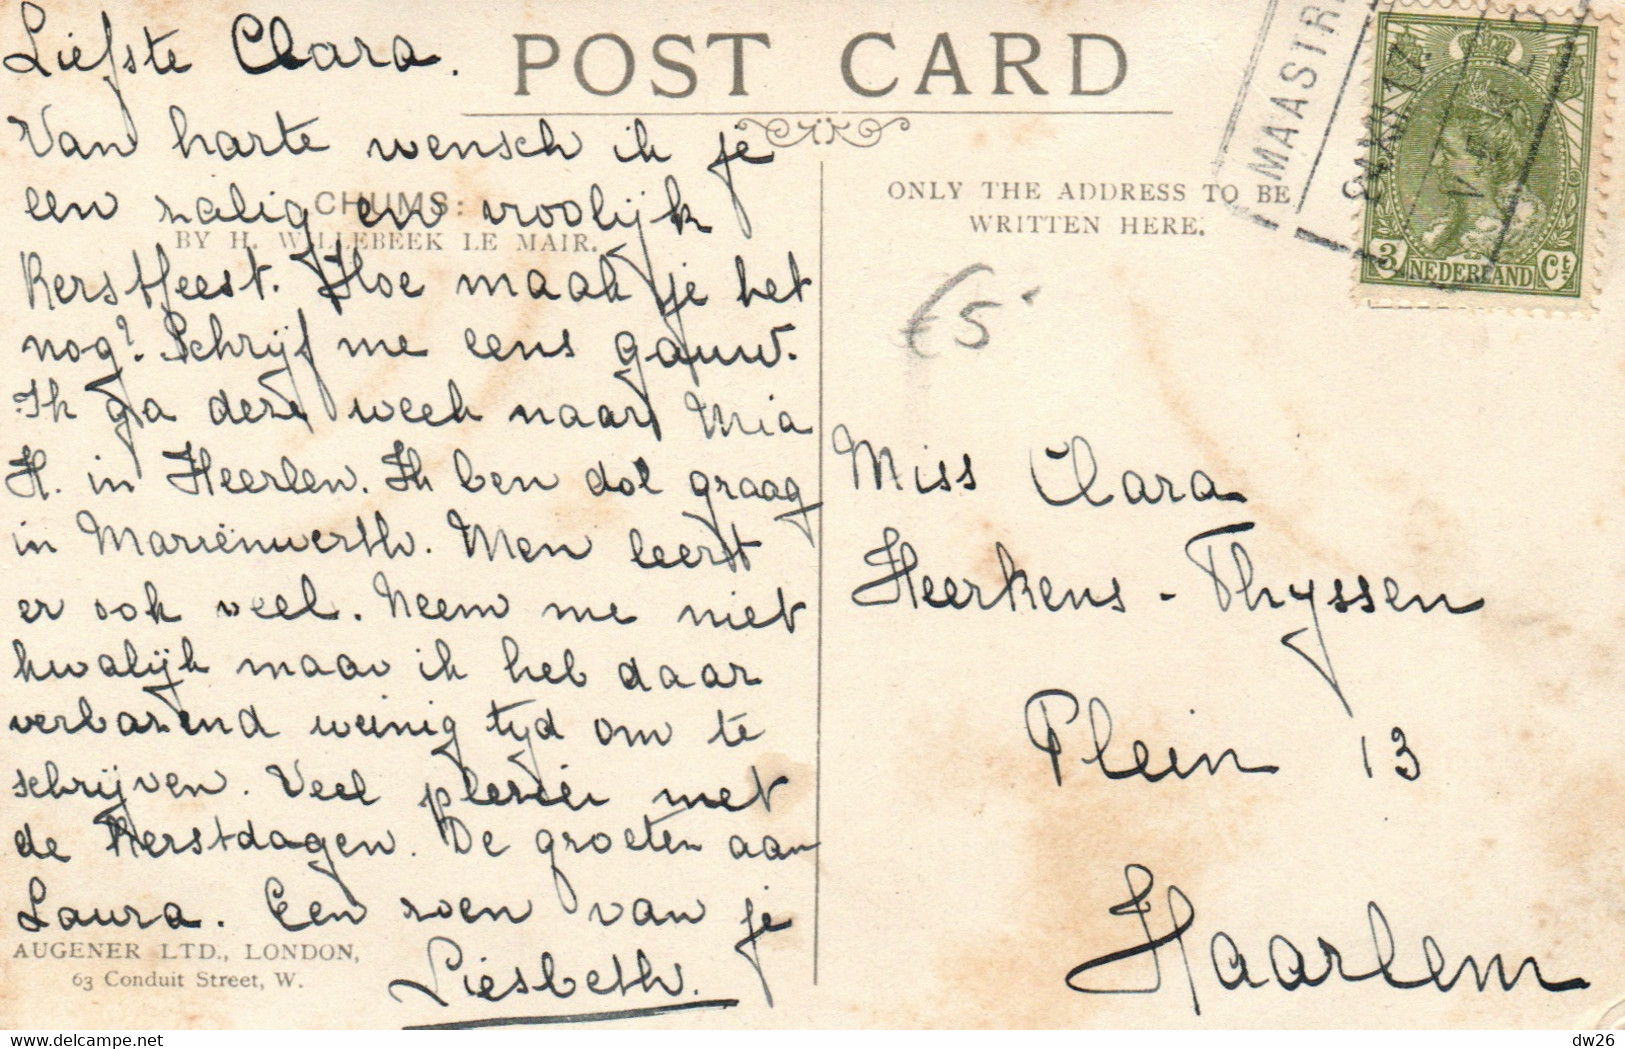 Liefste Clara.
POST CARD
Van harte wensch ik je
een zalig en vroolijk
CHUMS:
BY H. WILLEBEEK LE MAIR.
Kerstfeest. Hoe maak je het
nog? Schrijf me eens gauw.
Ik ga deze week naar Mia
H. in Heerlen. Ik ben dol graag
in Mariënwerth. Men leert
er ook veel. Neem me niet
kwalijk maar ik heb daar
verbazend weinig tijd om te
schrijven. Veel plezier met
de Kerstdagen. De groeten aan
Laura. Een zoen van je
Liesbeth.
AUGENER LTD., LONDON,
63 Conduit Street, W.
ONLY THE ADDRESS TO BE
WRITTEN HERE.
MAASTR
3 NEDERLAND Ct
€5
Miss Clara
Heerkens-Thyssen
Plein 13
Haarlem
dw26